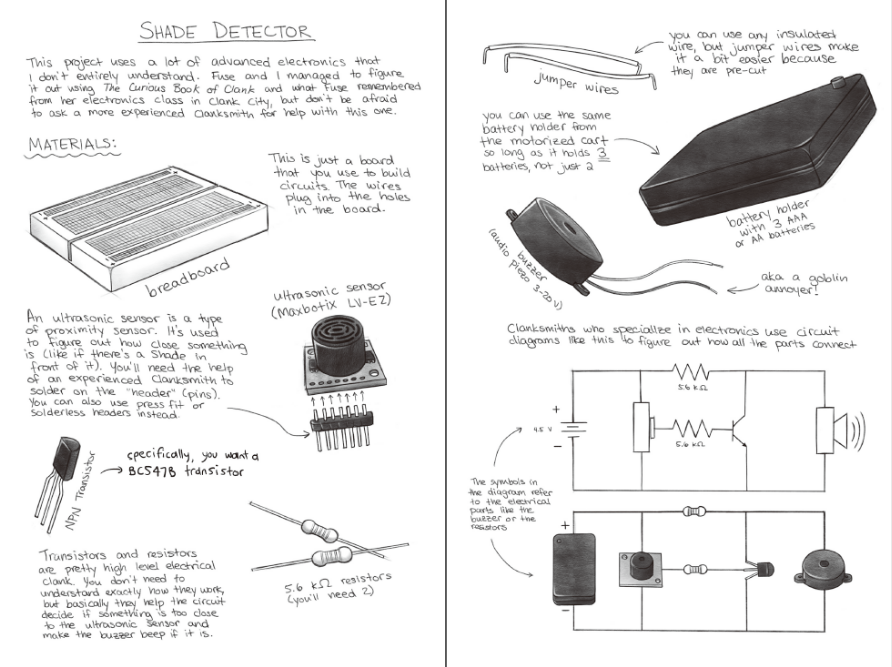 SHADE DETECTOR
This project uses a lot of advanced electronics that
I don't entirely understand. Fuse and I managed to figure
it out using The Curious Book of Clank and what Fuse remembered
from her electronics class in Clank City, but don't be afraid
to ask a more experienced Clanksmith for help with this one.
MATERIALS:
This is just a board
that you use to build
circuits. The wires
plug into the holes
in the board.
breadboard
ultrasonic sensor
(Maxbotix LV-EZ)
An ultrasonic sensor is a type
of proximity sensor. It's used
to figure out how close something
is (like if there's a Shade in
front of it). You'll need the help
of an experienced Clanksmith to
solder on the "header" (pins).
You can also use press fit or
solderless headers instead.
NPN Transistor
specifically, you want a
BC547B transistor
Transistors and resistors
are pretty high level electrical
clank. You don't need to
understand exactly how they work,
but basically they help the circuit
decide if something is too close
to the ultrasonic sensor and
make the buzzer beep if it is.
5.6 kΩ resistors
(you'll need 2)
jumper wires
you can use any insulated
wire, but jumper wires make
it a bit easier because
they are pre-cut
you can use the same
battery holder from
the motorized cart
so long as it holds 3
batteries, not just 2
battery holder
with 3 AAA
or AA batteries
buzzer
(audio piezo 3-20v)
aka a goblin
annoyer!
Clanksmiths who specialize in electronics use circuit
diagrams like this to figure out how all the parts connect
5.6 kΩ
+
4.5 V
5.6 kΩ
−
The symbols in
the diagram refer
to the electrical
parts like the
buzzer or the
resistors
+
−